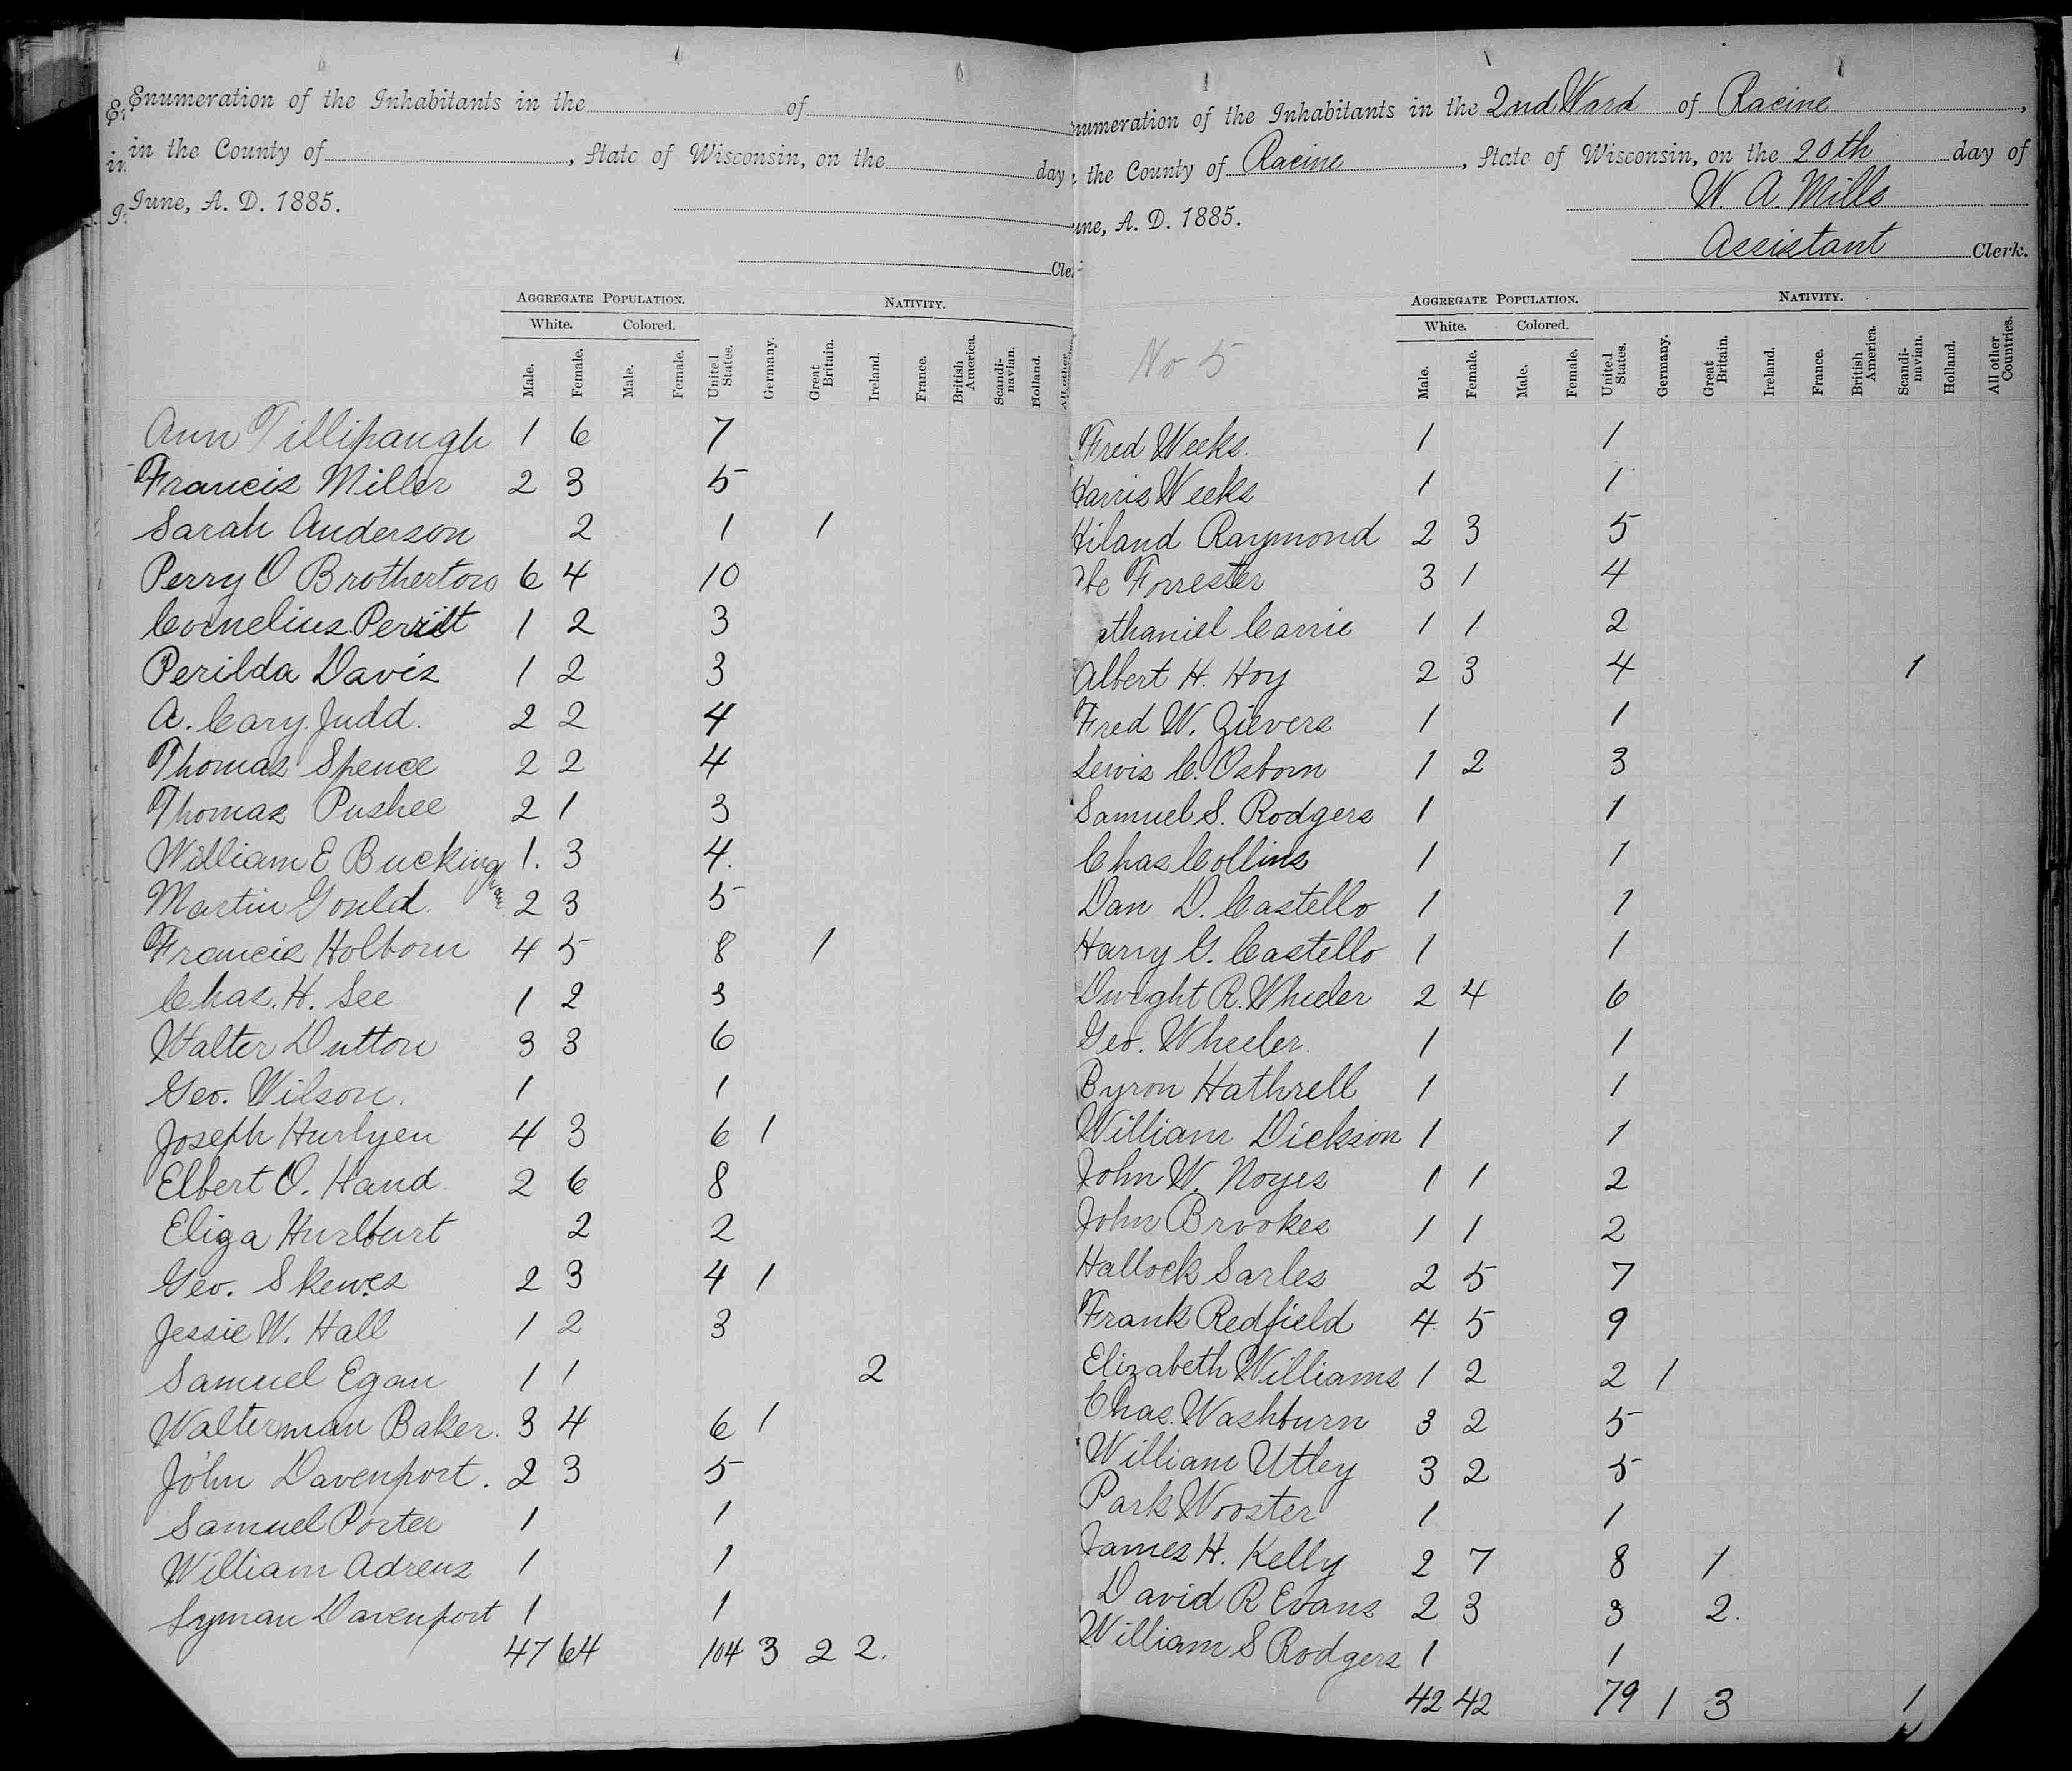 Enumeration of the Inhabitants in the of
in the County of , State of Wisconsin, on the day
June, A. D. 1885.
Cler
AGGREGATE POPULATION. NATIVITY.
White. Colored.
Male. Female. Male. Female. United States. Germany. Great Britain. Ireland. France. British America. Scandi-navian. Holland. All other
Ann Tillipaugh 1 6 7
Francis Miller 2 3 5
Sarah Anderson 2 1 1
Perry O Brotherton 6 4 10
Cornelius 1 2 3
Perilda Davis 1 2 3
A. Cary Judd. 2 2 4
Thomas Spence 2 2 4
Thomas Pushee 2 1 3
William E Buckingham 1. 3 4.
Martin Gould. 2 3 5
Francis Holborn 4 5 8 1
Chas. H. See 1 2 3
Walter Dutton 3 3 6
Geo. Wilson. 1 1
Joseph Hurlyen 4 3 6 1
Elbert O. Hand 2 6 8
Eliza Hurlburt 2 2
Geo. Skewes 2 3 4 1
Jessie W. Hall 1 2 3
Samuel Egan 1 1 2
Walterman Baker. 3 4 6 1
John Davenport. 2 3 5
Samuel Porter 1 1
William Adrens 1 1
Lyman Davenport 1 1
47 64 104 3 2 2.
numeration of the Inhabitants in the 2nd Ward of Racine,
the County of Racine, State of Wisconsin, on the 20th day of
une, A. D. 1885.
W. A. Mills
Assistant Clerk.
AGGREGATE POPULATION. NATIVITY.
White. Colored.
No 5
Male. Female. Male. Female. United States. Germany. Great Britain. Ireland. France. British America. Scandi-navian. Holland. All other Countries.
Fred Weeks. 1 1
Harris Weeks 1 1
Hiland Raymond 2 3 5
Forrester 3 1 4
athaniel Carrie 1 1 2
Albert H. Hoy 2 3 4 1
Fred W. Zievers 1 1
Lewis C. Osborn 1 2 3
Samuel S. Rodgers 1 1
Chas Collins 1 1
Dan D. Castello 1 1
Harry G. Castello 1 1
Dwight R. Wheeler 2 4 6
Geo. Wheeler. 1 1
Byron Hathrell 1 1
William Dickson 1 1
John W. Noyes 1 1 2
John Brookes 1 1 2
Hallock Sarles 2 5 7
Frank Redfield 4 5 9
Elizabeth Williams 1 2 2 1
Chas. Washburn 3 2 5
William Utley 3 2 5
Park Wooster 1 1
James H. Kelly 2 7 8 1
David R Evans 2 3 3 2.
William S Rodgers 1 1
42 42 79 1 3 1